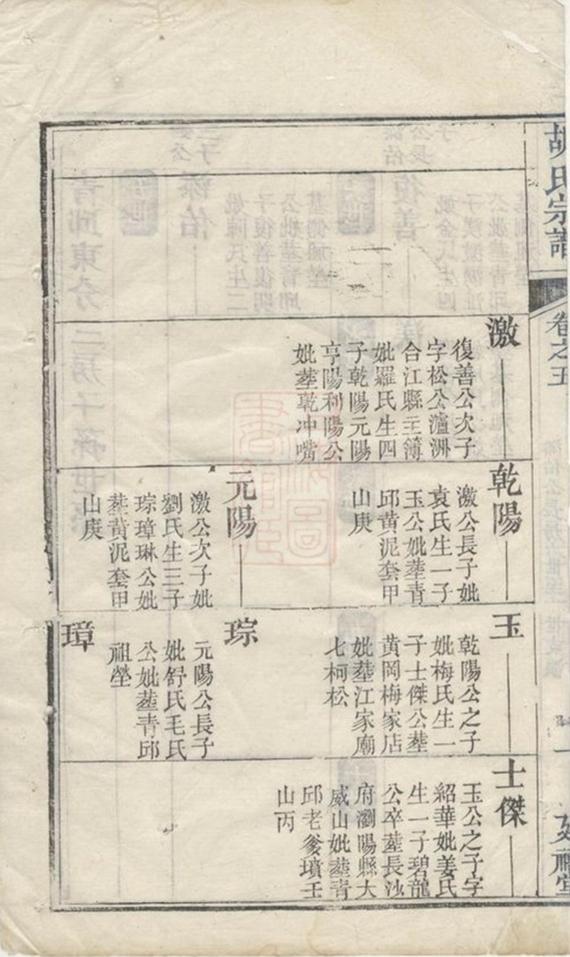 胡氏宗譜
卷之五
激
復善公次子
字松公瀘洲
合江縣主簿
妣羅氏生四
子乾陽元陽
亨陽利陽公
妣塟乾冲嘴
乾陽
激公長子妣
袁氏生一子
玉公妣塟青
邱黄泥套甲
山庚
元陽
激公次子妣
劉氏生三子
琮璋琳公妣
塟黄泥套甲
山庚
玉
乾陽公之子
妣梅氏生一
子士傑公塟
黄岡梅家店
妣塟江家廟
七柯松
琮
元陽公長子
妣舒氏毛氏
公妣塟青邱
祖塋
璋
士傑
玉公之子字
紹華妣姜氏
生一子碧龍
公卒塟長沙
府瀏陽縣大
威山妣塟青
邱老爹墳壬
山丙